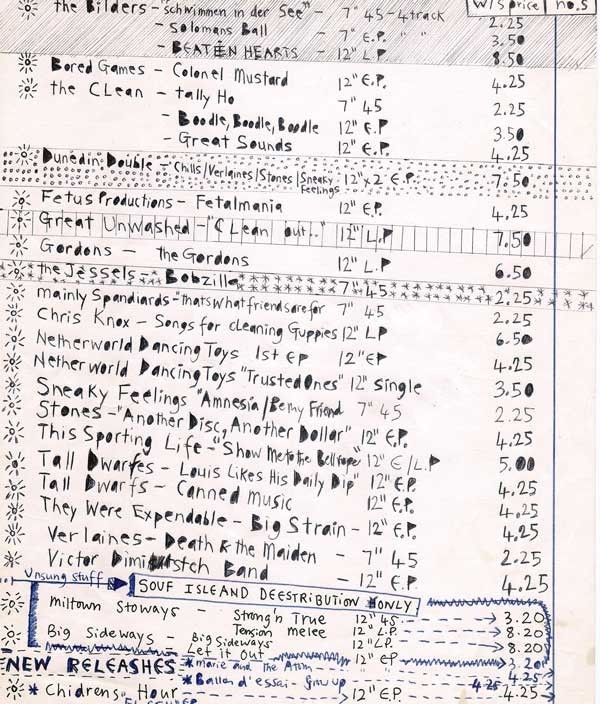 the Bilders - "schwimmen in der See" - 7" 45 - 4 track 2.25
W/S price no.s
- Solomans Ball - 7" E.P. " " 3.50
- BEATEN HEARTS - 12" L.P 8.50
Bored Games - Colonel Mustard 12" E.P. 4.25
the CLean - tally Ho 7" 45 2.25
- Boodle, Boodle, Boodle 12" E.P 3.50
- Great Sounds 12" E.P. 4.25
Dunedin Double - Chills/Verlaines/Stones/Sneaky Feelings 12" x 2 E.P. 7.50
Fetus Productions - Fetalmania 12" E.P. 4.25
Great Unwashed - "CLean out.." 12" L.P 7.50
Gordons - the Gordons 12" L.P 6.50
the Jessels - Bobzilla 7" 45 2.25
mainly Spandiards - thats what friends are for 7" 45 2.25
Chris Knox - Songs for cLeaning Guppies 12" LP 6.50
Netherworld Dancing Toys 1st EP 12" EP 4.25
Netherworld Dancing Toys "Trusted Ones" 12" Single 3.50
Sneaky Feelings "Amnesia/Be my Friend 7" 45 2.25
Stones - "Another Disc, Another Dollar" 12" E.P. 4.25
This Sporting Life - "Show Me to the Bellrope" 12" E/L.P 5.00
Tall Dwarfes - Louis Likes His Daily Dip" 12" E.P. 4.25
Tall Dwarfs - Canned Music 12" E.P. 4.25
They Were Expendable - Big Strain - 12" E.P. 4.25
Verlaines - Death & the Maiden - 7" 45 2.25
Victor Dimisitch Band - 12" E.P. 4.25
Unsung stuff SOUF ISLEAND DEESTRIBUTION ONLY
Miltown Stoways - Strong'n True 12" 45 3.20
Tension melee 12" L.P. 8.20
Big Sideways - Big Sideways 12" L.P. 8.20
Let it Out 12" EP 3.20
NEW RELEASHES * Marie and The Atom 4.25
* Ballon d'essai - Grow up 4.25
* Chidrens Hour 12" E.P. 4.25